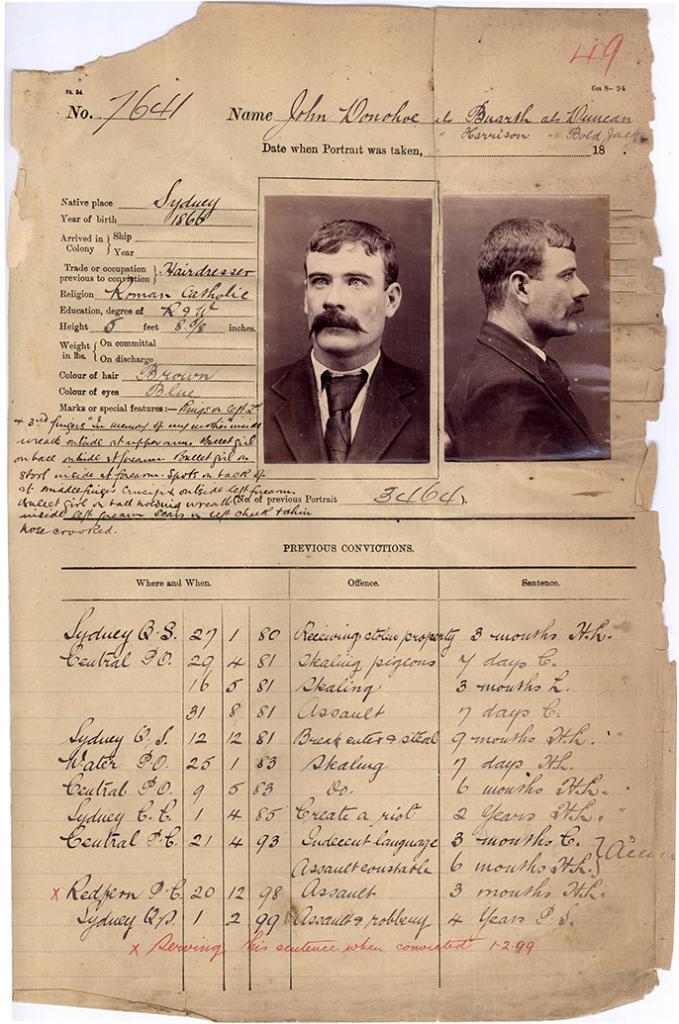 49
No. 7641 Name John Donohoe als Buarth als Duncan
" Harrison " Bold Jack
Date when Portrait was taken, 18
Native place Sydney
Year of birth 1866
Arrived in Colony } Ship
Year
Trade or occupation previous to conviction } Hairdresser
Religion Roman Catholic
Education, degree of R & W
Height 5 feet 8 inches.
Weight in lbs. { On committal
On discharge
Colour of hair Brown
Colour of eyes Blue
Marks or special features:— Rings on left 2nd
+ 3rd fingers "In memory of my mother" inside
wreath outside rt upper arm Ballet girl
on ball outside rt forearm Ballet girl on
stool inside rt forearm. Spots on back of
rt middle finger Crucifix outside left forearm.
Ballet girl on ball holding wreath
inside left forearm Scars on left cheek + chin
nose crooked.
(No. of previous Portrait 3464).
PREVIOUS CONVICTIONS.
Where and When. Offence. Sentence.
Sydney Q.S. 27 1 80 Receiving stolen property 3 months H.L.
Central P.O. 29 4 81 Stealing pigeons 7 days C.
16 5 81 Stealing 3 months L.
31 8 81 Assault 7 days C.
Sydney Q.S. 12 12 81 Break enter & steal 9 months H.L.
Water P.O. 25 1 83 Stealing 7 days H.L.
Central P.O. 9 5 83 Do. 6 months H.L.
Sydney C.C. 1 4 85 Create a riot 2 Years H.L.
Central P.C. 21 4 93 Indecent language 3 months C.
Assault constable 6 months H.L.
x Redfern P.C. 20 12 98 Assault 3 months H.L.
Sydney Q.S. 1 2 99 Assault & robbery 4 Years P.S.
x Serving this sentence when convicted 1-2-99